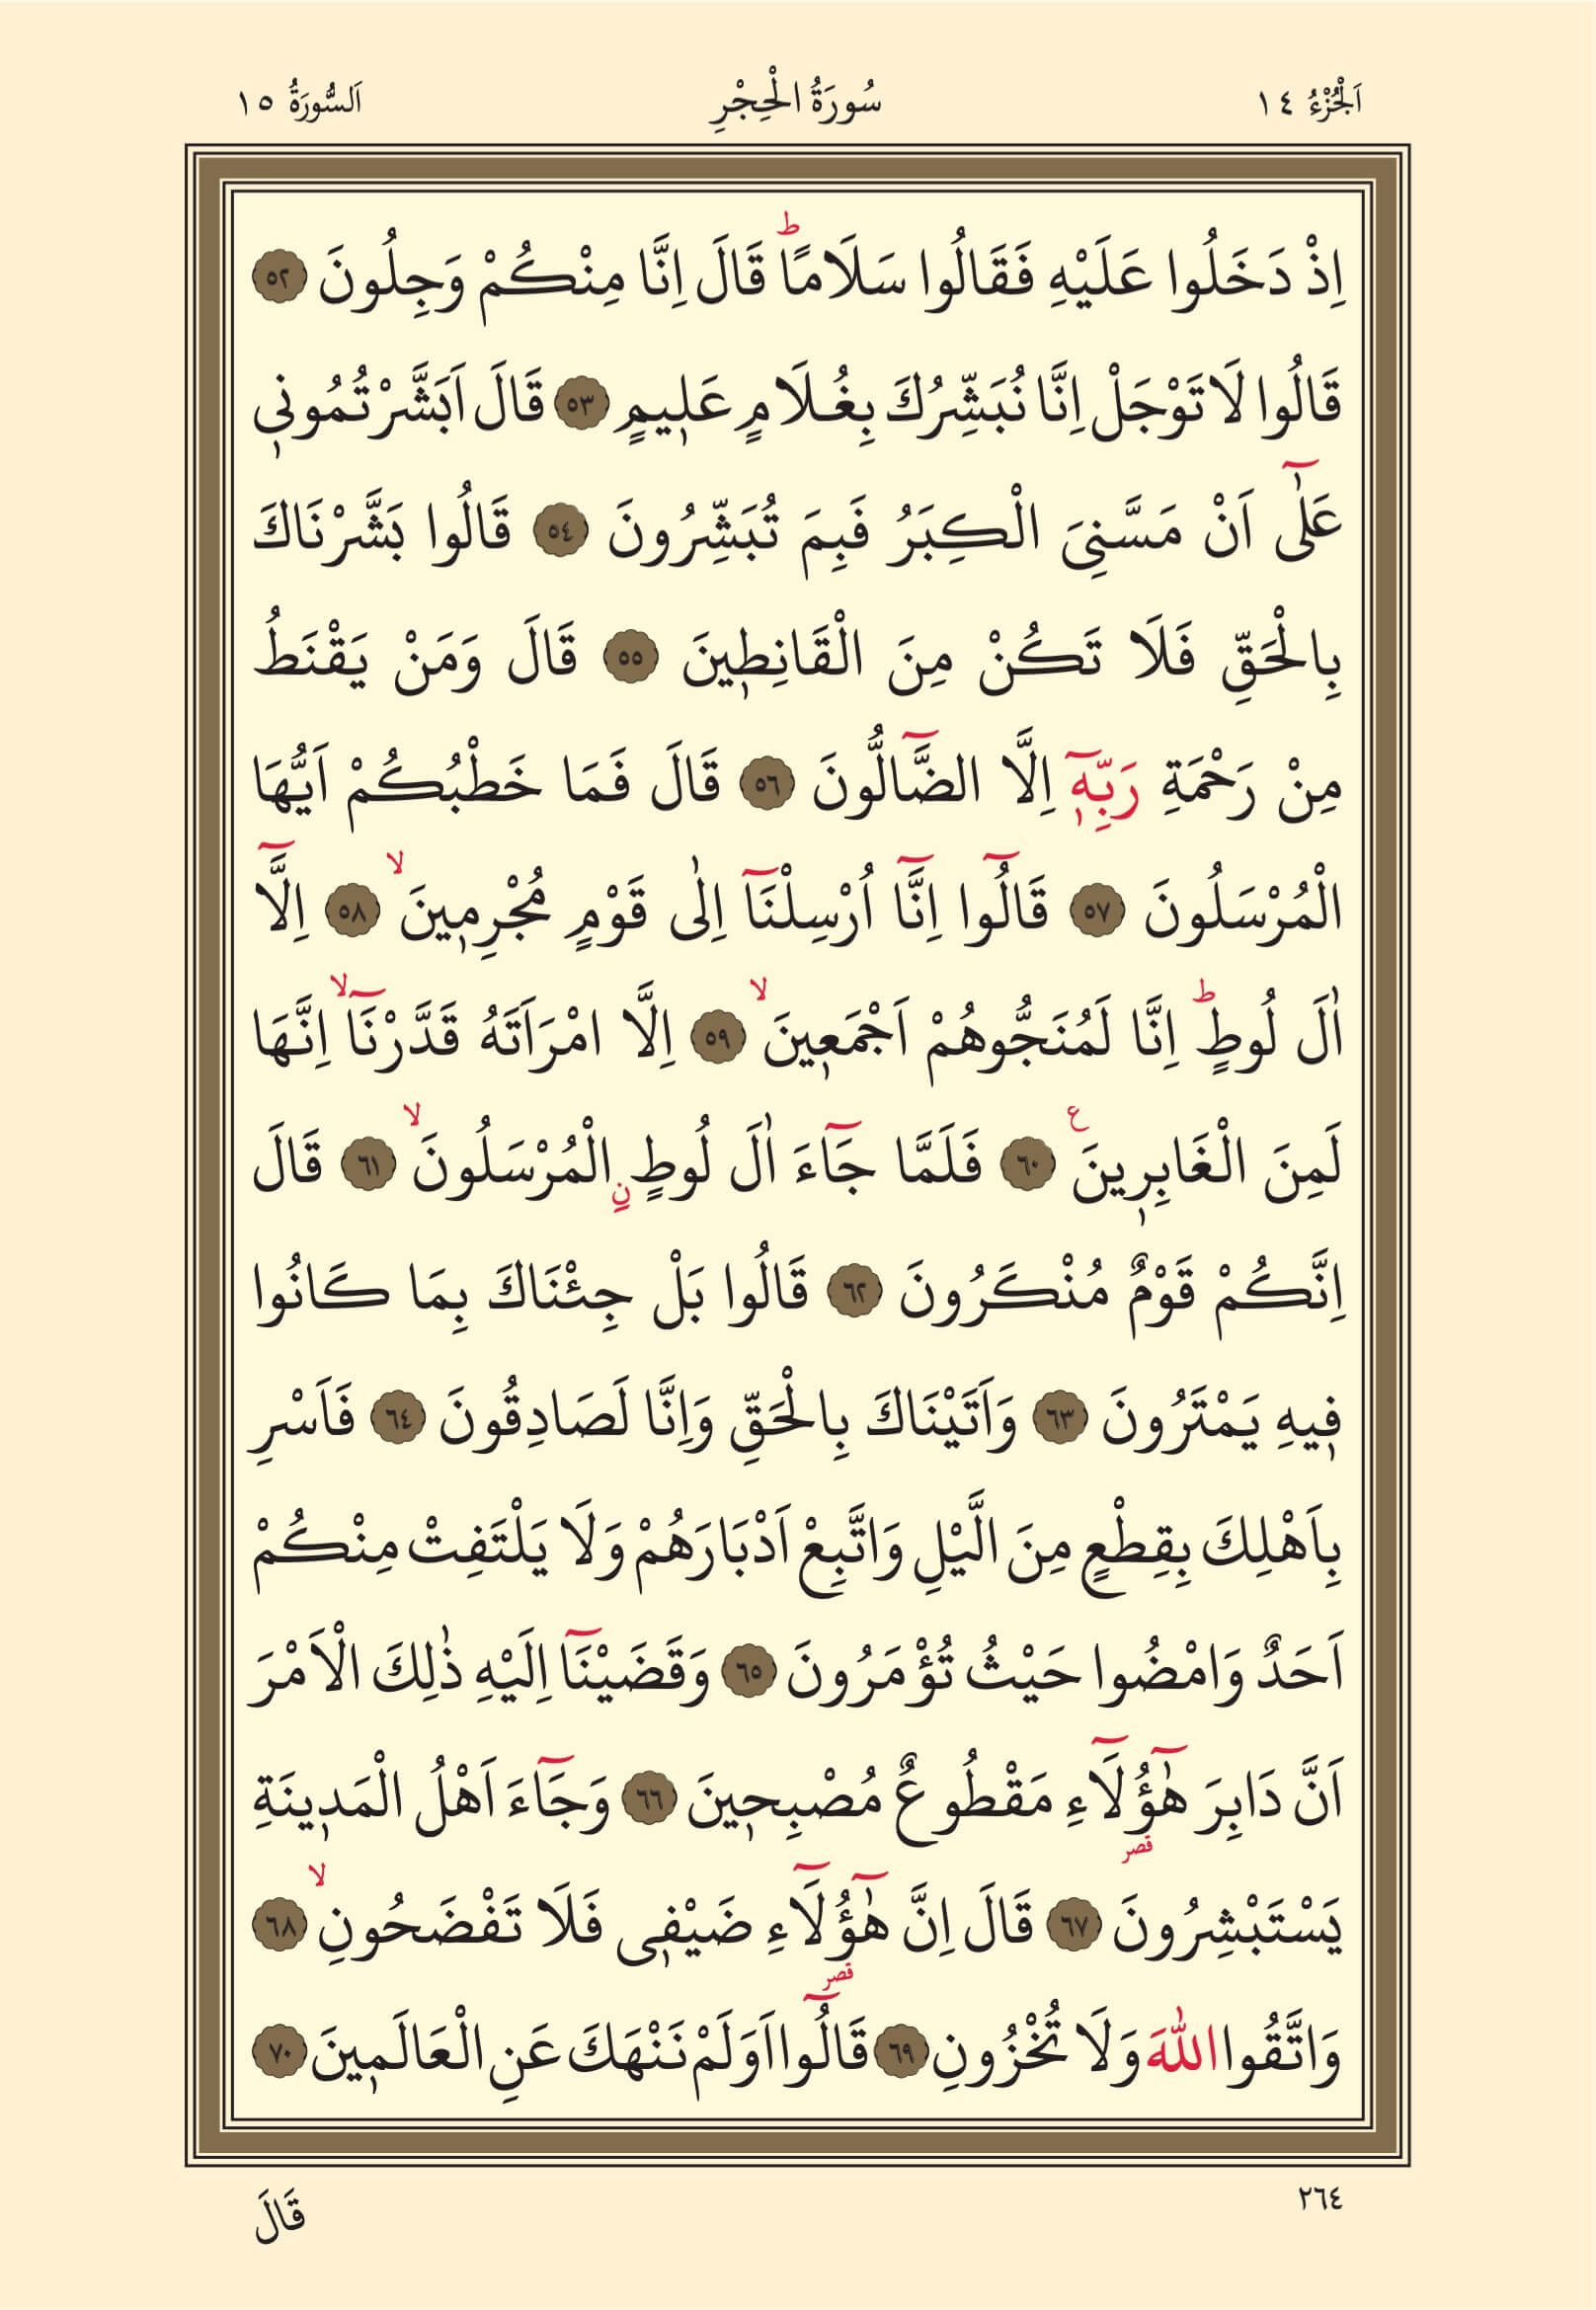 اَلْجُزْءُ ١٤
سُورَةُ الْحِجْرِ
اَلسُّورَةُ ١٥
اِذْ دَخَلُوا عَلَيْهِ فَقَالُوا سَلَامًاۜ قَالَ اِنَّا مِنْكُمْ وَجِلُونَ ٥٢
قَالُوا لَا تَوْجَلْ اِنَّا نُبَشِّرُكَ بِغُلَامٍ عَل۪يمٍ ٥٣ قَالَ اَبَشَّرْتُمُون۪ي
عَلٰٓى اَنْ مَسَّنِيَ الْكِبَرُ فَبِمَ تُبَشِّرُونَ ٥٤ قَالُوا بَشَّرْنَاكَ
بِالْحَقِّ فَلَا تَكُنْ مِنَ الْقَانِط۪ينَ ٥٥ قَالَ وَمَنْ يَقْنَطُ
مِنْ رَحْمَةِ رَبِّه۪ٓ اِلَّا الضَّٓالُّونَ ٥٦ قَالَ فَمَا خَطْبُكُمْ اَيُّهَا
الْمُرْسَلُونَ ٥٧ قَالُٓوا اِنَّٓا اُرْسِلْنَٓا اِلٰى قَوْمٍ مُجْرِم۪ينَۙ ٥٨ اِلَّٓا
اٰلَ لُوطٍۜ اِنَّا لَمُنَجُّوهُمْ اَجْمَع۪ينَۙ ٥٩ اِلَّا امْرَاَتَهُ قَدَّرْنَٓاۙ اِنَّهَا
لَمِنَ الْغَابِر۪ينَ ع ٦٠ فَلَمَّا جَٓاءَ اٰلَ لُوطٍ نِ الْمُرْسَلُونَۙ ٦١ قَالَ
اِنَّكُمْ قَوْمٌ مُنْكَرُونَ ٦٢ قَالُوا بَلْ جِئْنَاكَ بِمَا كَانُوا
ف۪يهِ يَمْتَرُونَ ٦٣ وَاَتَيْنَاكَ بِالْحَقِّ وَاِنَّا لَصَادِقُونَ ٦٤ فَاَسْرِ
بِاَهْلِكَ بِقِطْعٍ مِنَ الَّيْلِ وَاتَّبِعْ اَدْبَارَهُمْ وَلَا يَلْتَفِتْ مِنْكُمْ
اَحَدٌ وَامْضُوا حَيْثُ تُؤْمَرُونَ ٦٥ وَقَضَيْنَٓا اِلَيْهِ ذٰلِكَ الْاَمْرَ
اَنَّ دَابِرَ هٰٓؤُ۬لَٓاءِ مَقْطُوعٌ مُصْبِح۪ينَ ٦٦ وَجَٓاءَ اَهْلُ الْمَد۪ينَةِ
قصر
يَسْتَبْشِرُونَ ٦٧ قَالَ اِنَّ هٰٓؤُ۬لَٓاءِ ضَيْف۪ي فَلَا تَفْضَحُونِۙ ٦٨
قصر
وَاتَّقُوا اللّٰهَ وَلَا تُخْزُونِ ٦٩ قَالُٓوا اَوَلَمْ نَنْهَكَ عَنِ الْعَالَم۪ينَ ٧٠
٢٦٤
قَالَ